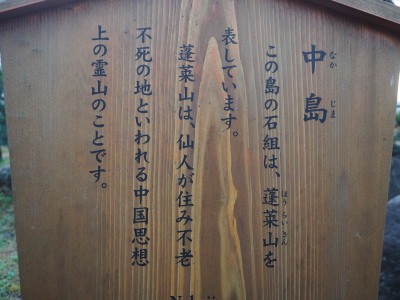 中島
なかじま
この島の石組は、蓬莱山を
ほうらいさん
表しています。
蓬莱山は、仙人が住み不老
不死の地といわれる中国思想
上の霊山のことです。